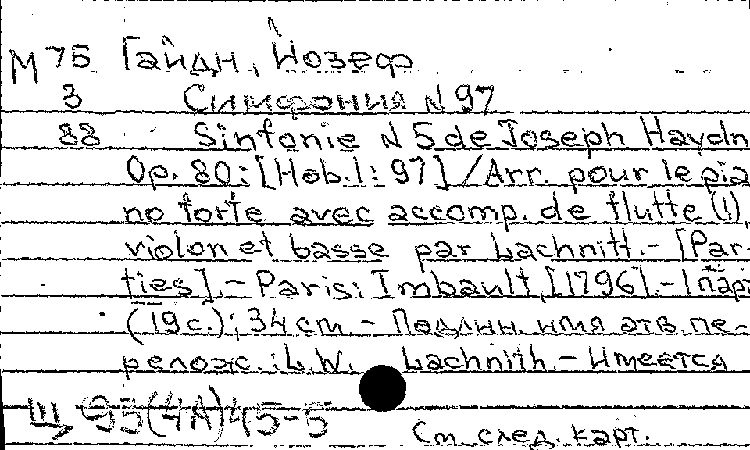 М 75 Гайдн, Йозеф
3 Симфония N 97
88 Sinfonie N 5 de Joseph Haydn
Op. 80: [Hob. I: 97] / Arr. pour le pia
no forte avec accomp. de flutte (!),
violon et basse par Lachnitt. - [Par-
ties]. - Paris: Imbault, [1796]. - 1 парт
(19 с.); 34 cm. - Подлин. имя отв. пе-
релож.: L. W. Lachnith - Имеется
Щ 95(4А)45-5
См. след. карт.